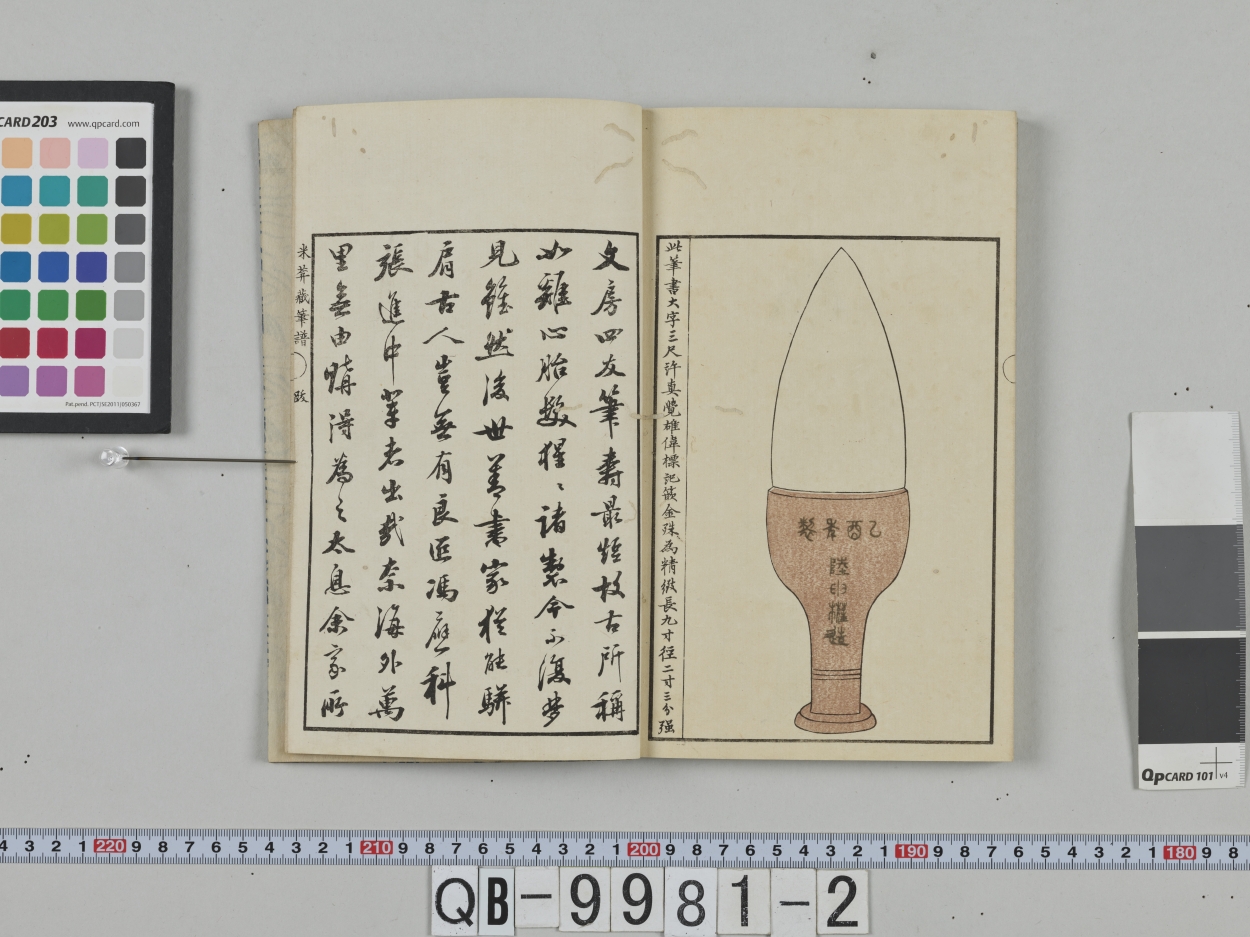 乙酉米製
陸印耀㪽
此筆書大字三尺許真覺雄偉標記筬金殊為精緻長九寸徑二寸三分强
文房四友筆壽最短故古所稱
如雞心胎髮猩〻諸製今不復夢
見雖然後世善書家猶能駢
肩古人豈無有良匠馮應科
張進中輩者出哉奈海外萬
里無由購得為之太息余家所
米葊藏筆譜
跋
CARD 203 www.qpcard.com
Pat.pend. PCT/SE2011/050367
QpCARD 101 v4
4 3 2 1 220 9 8 7 6 5 4 3 2 1 210 9 8 7 6 5 4 3 2 1 200 9 8 7 6 5 4 3 2 1 190 9 8 7 6 5 4 3 2 1 180 9 8
QB-9981-2